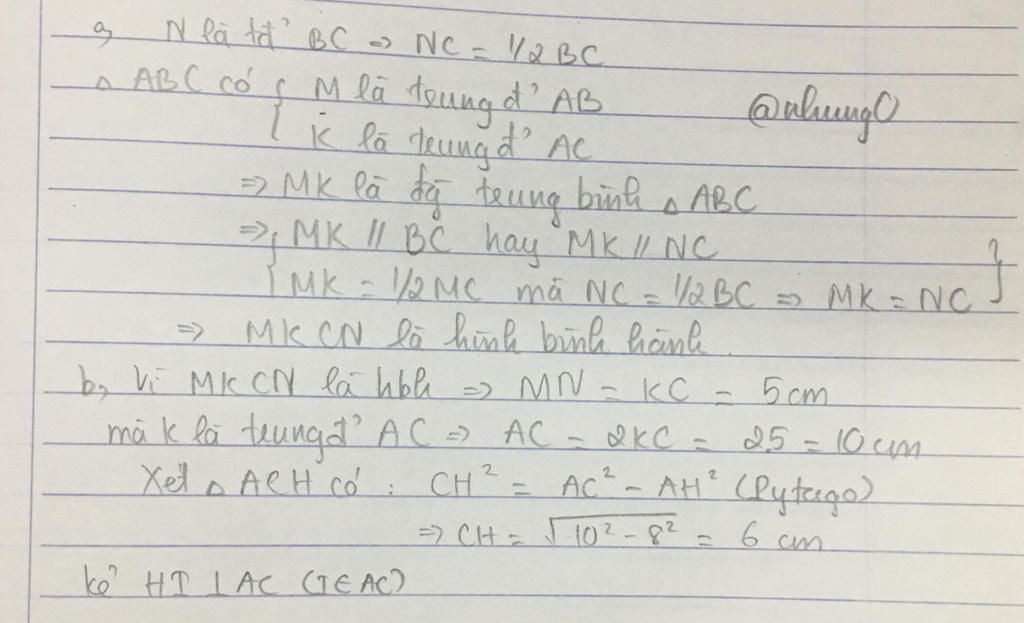 a, N là tđ' BC => NC = 1/2 BC
△ ABC có { M là trung đ' AB
@nhungO
K là trung đ' AC
=> MK là đg̃ trung bình △ ABC
=> { MK // BC hay MK // NC }
MK = 1/2 MC mà NC = 1/2 BC => MK = NC
=> MKCN là hình bình hành.
b, Vì MKCN là hbh => MN = KC = 5cm
mà K là trung đ' AC => AC = 2KC = 2.5 = 10 cm
Xét △ ACH có : CH² = AC² - AH² (Pytago)
=> CH = √10² - 8² = 6 cm
kẻ HI ⊥ AC (I ∈ AC)